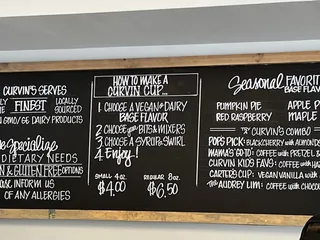 CURVIN'S SERVES
FINEST
LOCALLY
SOURCED
GMO/GE DAIRY PRODUCTS
Specialize
DIETARY NEEDS
& GLUTEN FREE OPTIONS
INFORM US
OF ANY ALLERGIES
HOW TO MAKE A
CURVIN CUP...
1. CHOOSE A VEGAN OR DAIRY
BASE FLAVOR
2. CHOOSE YOUR BITS & MIXERS
3. CHOOSE A SYRUP & SWIRL
4. Enjoy!
SMALL 4oz.
$4.00
REGULAR 8oz.
$6.50
Seasonal FAVORIT
BASE FLAV
PUMPKIN PIE
RED RASPBERRY
APPLE P
MAPLE
CURVIN'S COMBO
POPS PICK: BLACKCHERRY with ALMONDS
MAMA'S GO TO: COFFEE with PRETZEL &
CURVIN KIDS FAVS: COFFEE with HA
CARTER'S CUP: VEGAN VANILLA with
THE AUDREY LIM: COFFEE with CHOCO